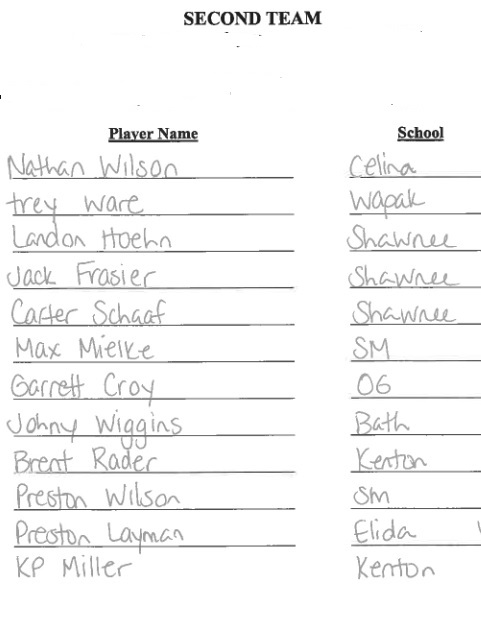 SECOND TEAM
Player Name School
Nathan Wilson Celina
trey ware Wapak
Landon Hoehn Shawnee
Jack Frasier Shawnee
Carter Schaaf Shawnee
Max Mielke SM
Garrett Croy OG
Johny Wiggins Bath
Brent Rader Kenton
Preston Wilson Sm
Preston Layman Elida
KP Miller Kenton